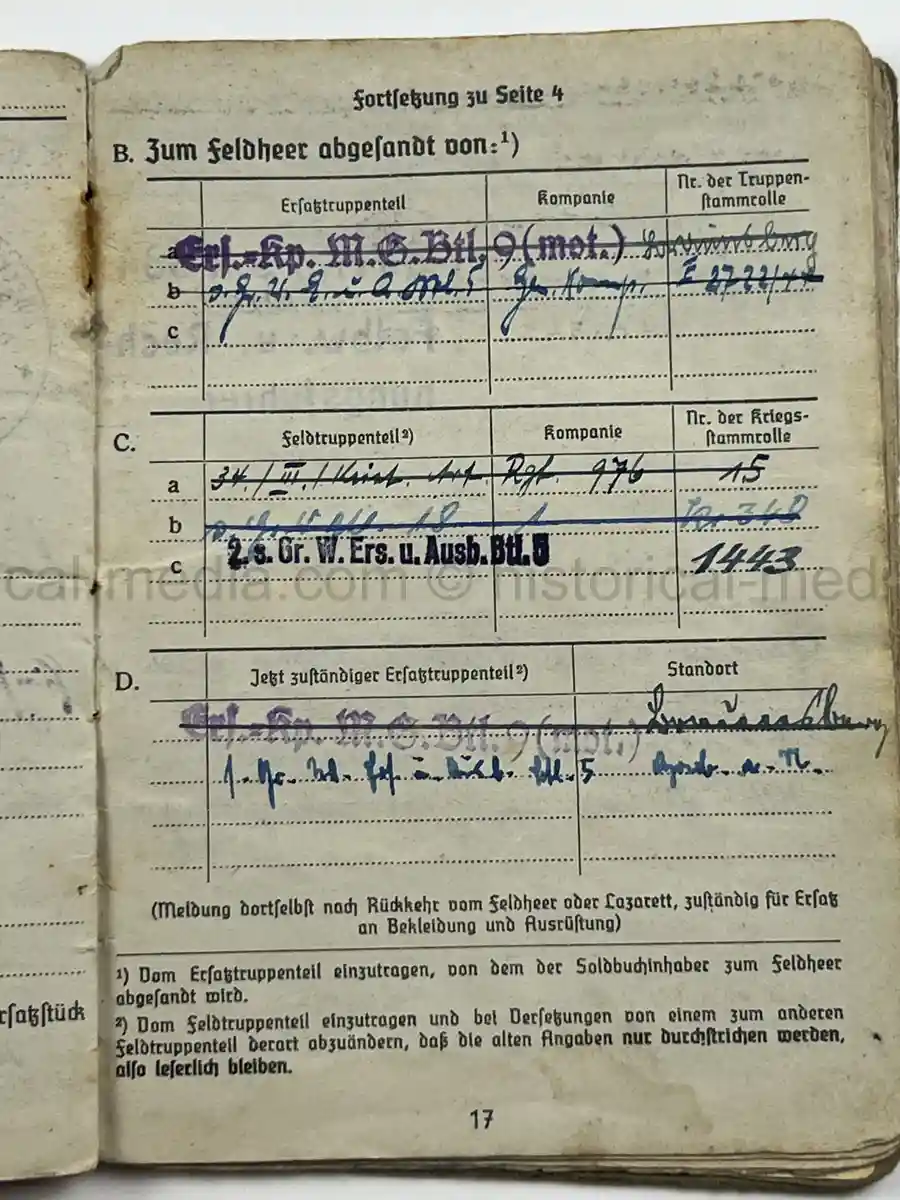 Fortsetzung zu Seite 4
B. Zum Feldheer abgesandt von:¹)
Ersatztruppenteil Kompanie Nr. der Truppen-
stammrolle
a Ers.-Kp. M.G.Btl. 9 (mot.)
b s. Gr. W. E. u. A. Btl. 5 Gen. Komp.
c
C. Feldtruppenteil²) Kompanie Nr. der Kriegs-
stammrolle
a 34./III./Küst. Art. Rgt. 976 15
b 1
c 2. s. Gr. W. Ers. u. Ausb. Btl. 5 1443
D. Jetzt zuständiger Ersatztruppenteil²) Standort
Ers.-Kp. M.G.Btl. 9 (mot.)
1. Gr. W. Ers. u. Ausb. Btl. 5
(Meldung dortselbst nach Rückkehr vom Feldheer oder Lazarett, zuständig für Ersatz
an Bekleidung und Ausrüstung)
¹) Vom Ersatztruppenteil einzutragen, von dem der Soldbuchinhaber zum Feldheer
abgesandt wird.
²) Vom Feldtruppenteil einzutragen und bei Versetzungen von einem zum anderen
Feldtruppenteil derart abzuändern, daß die alten Angaben nur durchstrichen werden,
also leserlich bleiben.
17
rsatzstück
cal-media.com © historical-med